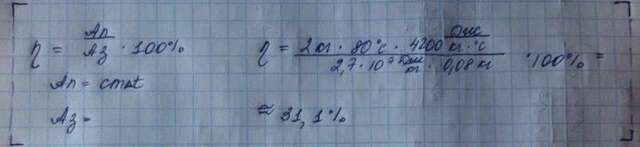 η = Ап/Аз · 100%
η = 2 кг · 80°C · 4200 Дж/кг·°C / 2,7 · 10⁷ Дж/кг · 0,08 кг · 100% =
Ап = cmΔt
Аз =
≈ 31,1%